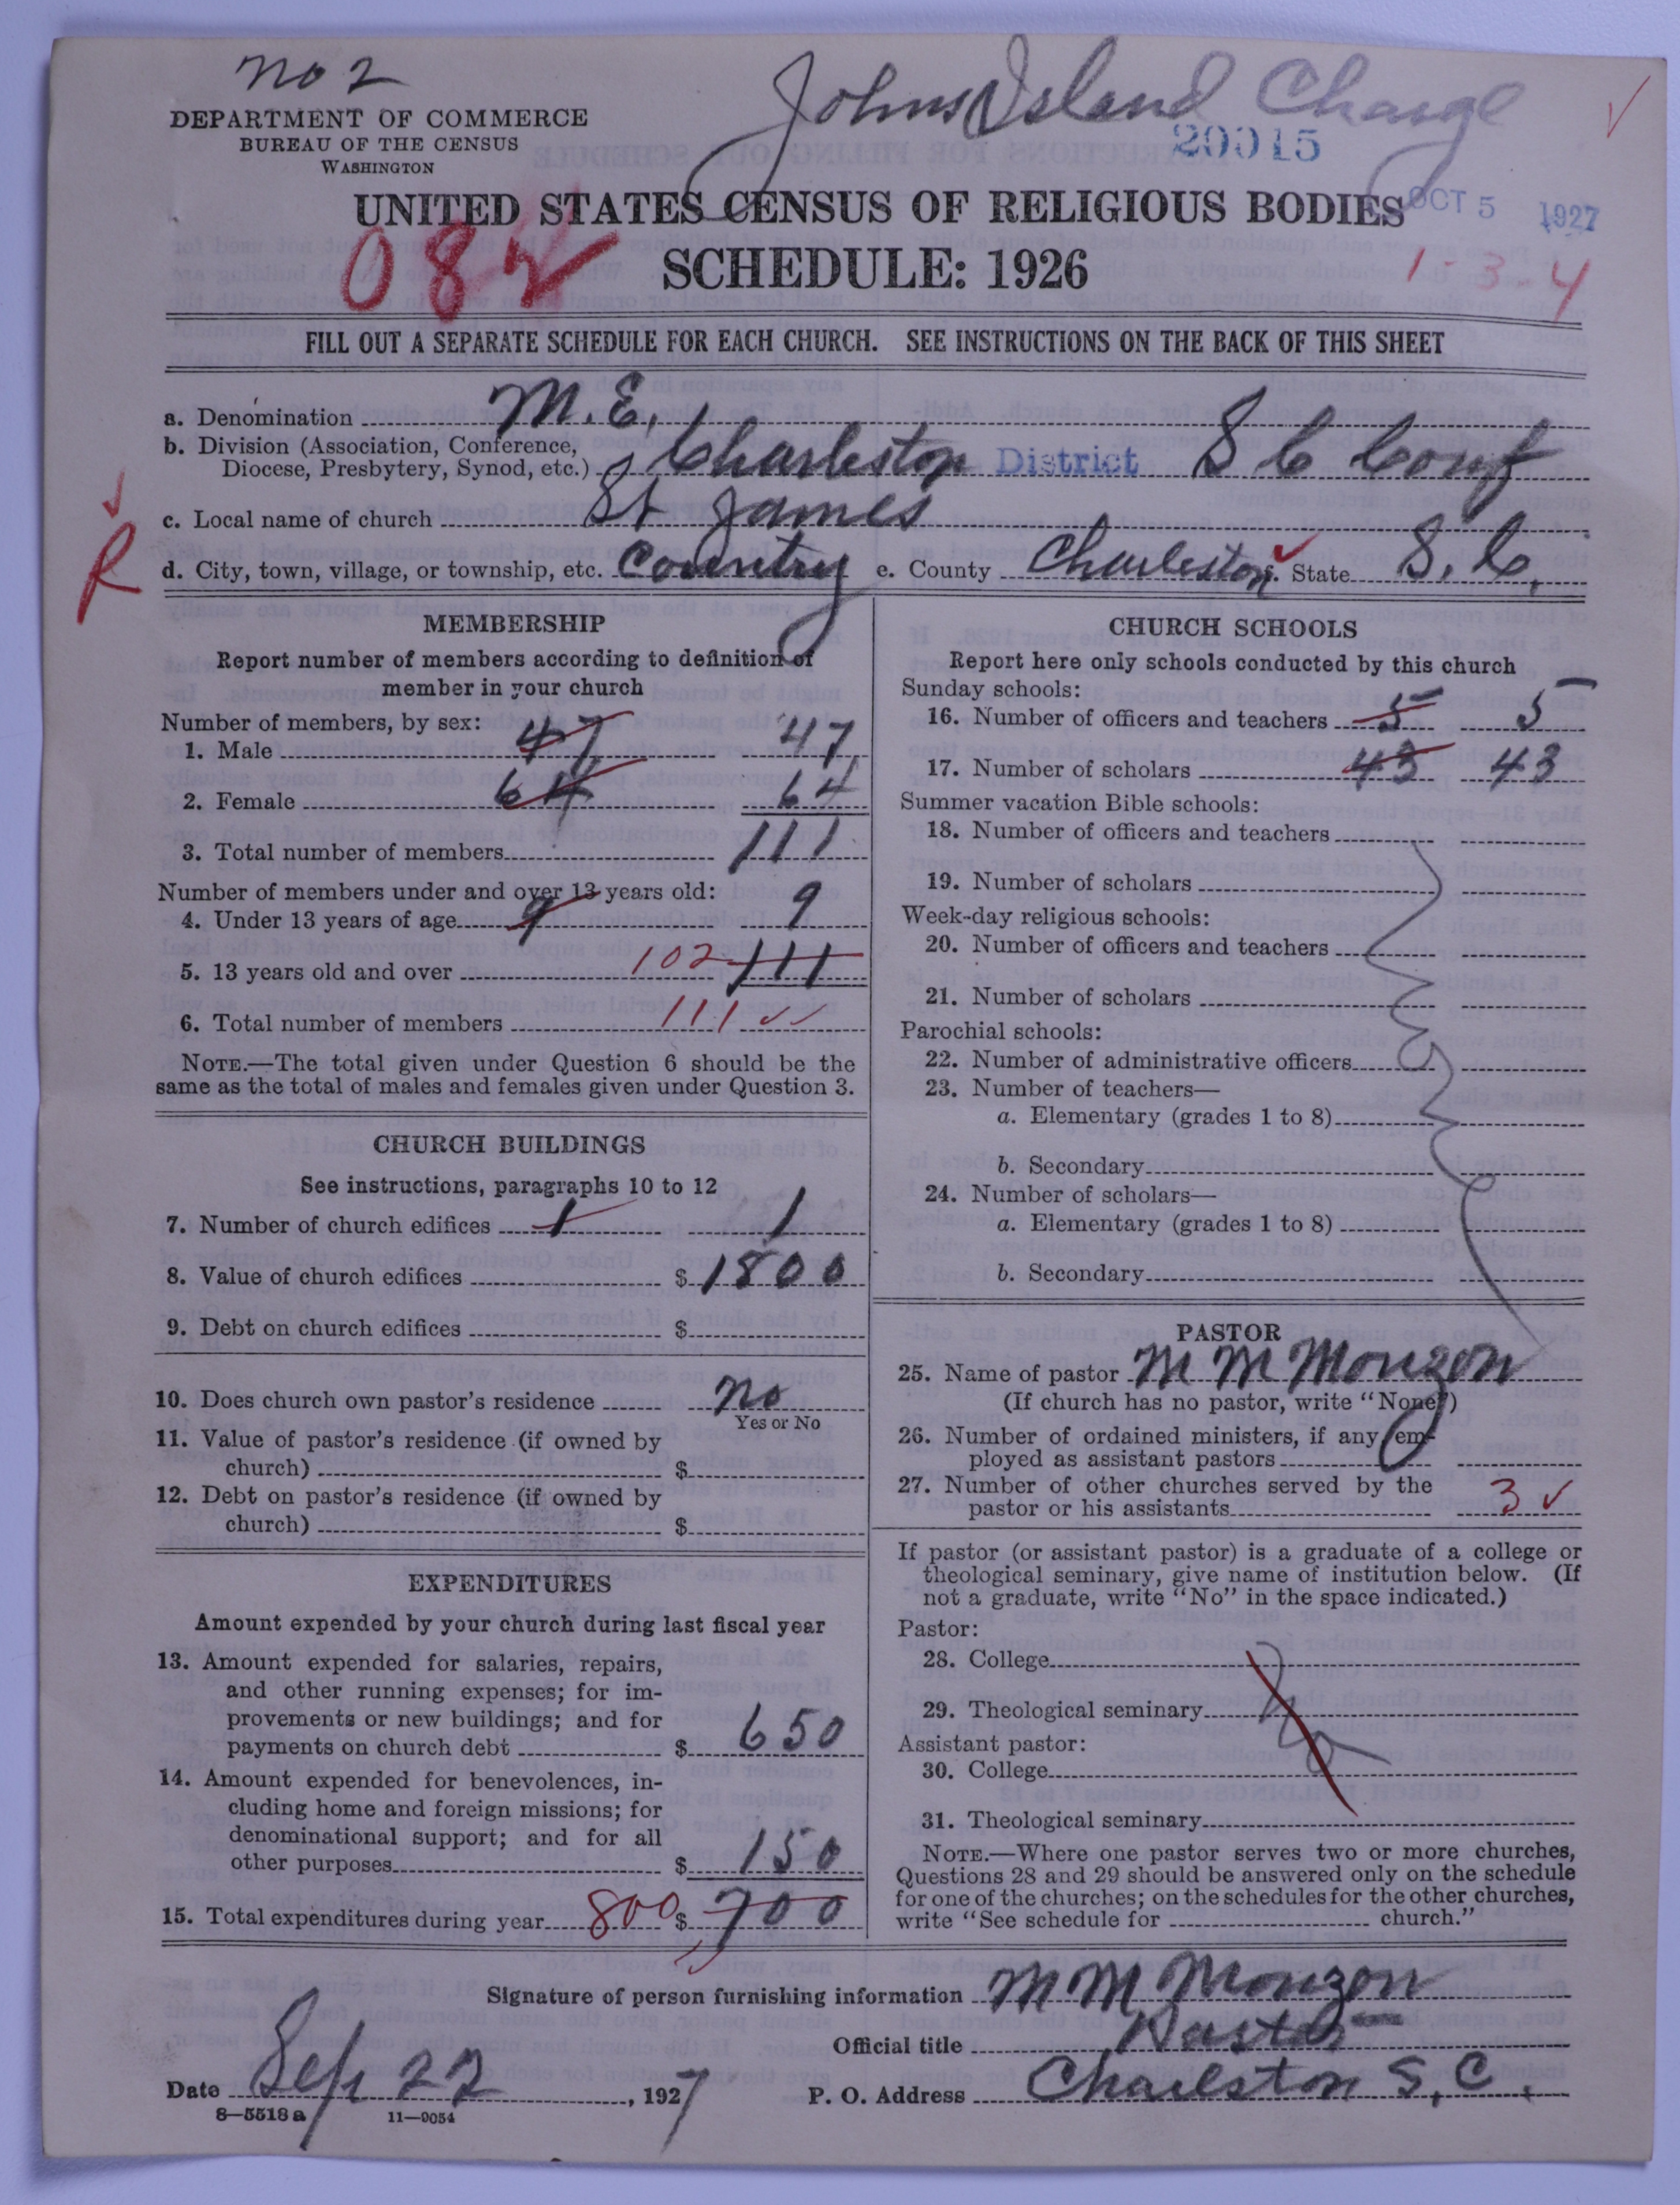 No 2
Johns Island Charge
DEPARTMENT OF COMMERCE
BUREAU OF THE CENSUS
WASHINGTON
20015
UNITED STATES CENSUS OF RELIGIOUS BODIES
OCT 5 1927
082
SCHEDULE: 1926
1-3-4
FILL OUT A SEPARATE SCHEDULE FOR EACH CHURCH. SEE INSTRUCTIONS ON THE BACK OF THIS SHEET
a. Denomination M. E.
b. Division (Association, Conference,
Diocese, Presbytery, Synod, etc.) Charleston District S C Conf
c. Local name of church St James
R
d. City, town, village, or township, etc. Country e. County Charleston State S. C.
MEMBERSHIP
Report number of members according to definition of
member in your church
Number of members, by sex:
1. Male 47 47
2. Female 64 64
3. Total number of members 111
Number of members under and over 13 years old:
4. Under 13 years of age 9 9
5. 13 years old and over 102 111
6. Total number of members 111
NOTE.—The total given under Question 6 should be the
same as the total of males and females given under Question 3.
CHURCH BUILDINGS
See instructions, paragraphs 10 to 12
7. Number of church edifices 1 1
8. Value of church edifices $ 1800
9. Debt on church edifices $
10. Does church own pastor's residence No
Yes or No
11. Value of pastor's residence (if owned by
church) $
12. Debt on pastor's residence (if owned by
church) $
EXPENDITURES
Amount expended by your church during last fiscal year
13. Amount expended for salaries, repairs,
and other running expenses; for im-
provements or new buildings; and for
payments on church debt $ 650
14. Amount expended for benevolences, in-
cluding home and foreign missions; for
denominational support; and for all
other purposes $ 150
15. Total expenditures during year 800 $ 700
CHURCH SCHOOLS
Report here only schools conducted by this church
Sunday schools:
16. Number of officers and teachers 5 5
17. Number of scholars 43 43
Summer vacation Bible schools:
18. Number of officers and teachers
19. Number of scholars
Week-day religious schools:
20. Number of officers and teachers
21. Number of scholars
Parochial schools:
22. Number of administrative officers
23. Number of teachers—
a. Elementary (grades 1 to 8)
b. Secondary
24. Number of scholars—
a. Elementary (grades 1 to 8)
b. Secondary
PASTOR
25. Name of pastor M M Mouzon
(If church has no pastor, write "None")
26. Number of ordained ministers, if any em-
ployed as assistant pastors
27. Number of other churches served by the
pastor or his assistants 3
If pastor (or assistant pastor) is a graduate of a college or
theological seminary, give name of institution below. (If
not a graduate, write "No" in the space indicated.)
Pastor:
28. College
29. Theological seminary No
Assistant pastor:
30. College
31. Theological seminary
NOTE.—Where one pastor serves two or more churches,
Questions 28 and 29 should be answered only on the schedule
for one of the churches; on the schedules for the other churches,
write "See schedule for church."
Signature of person furnishing information M M Mouzon
Official title Pastor
Date Sep 22, 1927 P. O. Address Charleston S. C.
8—5518 a 11—9054